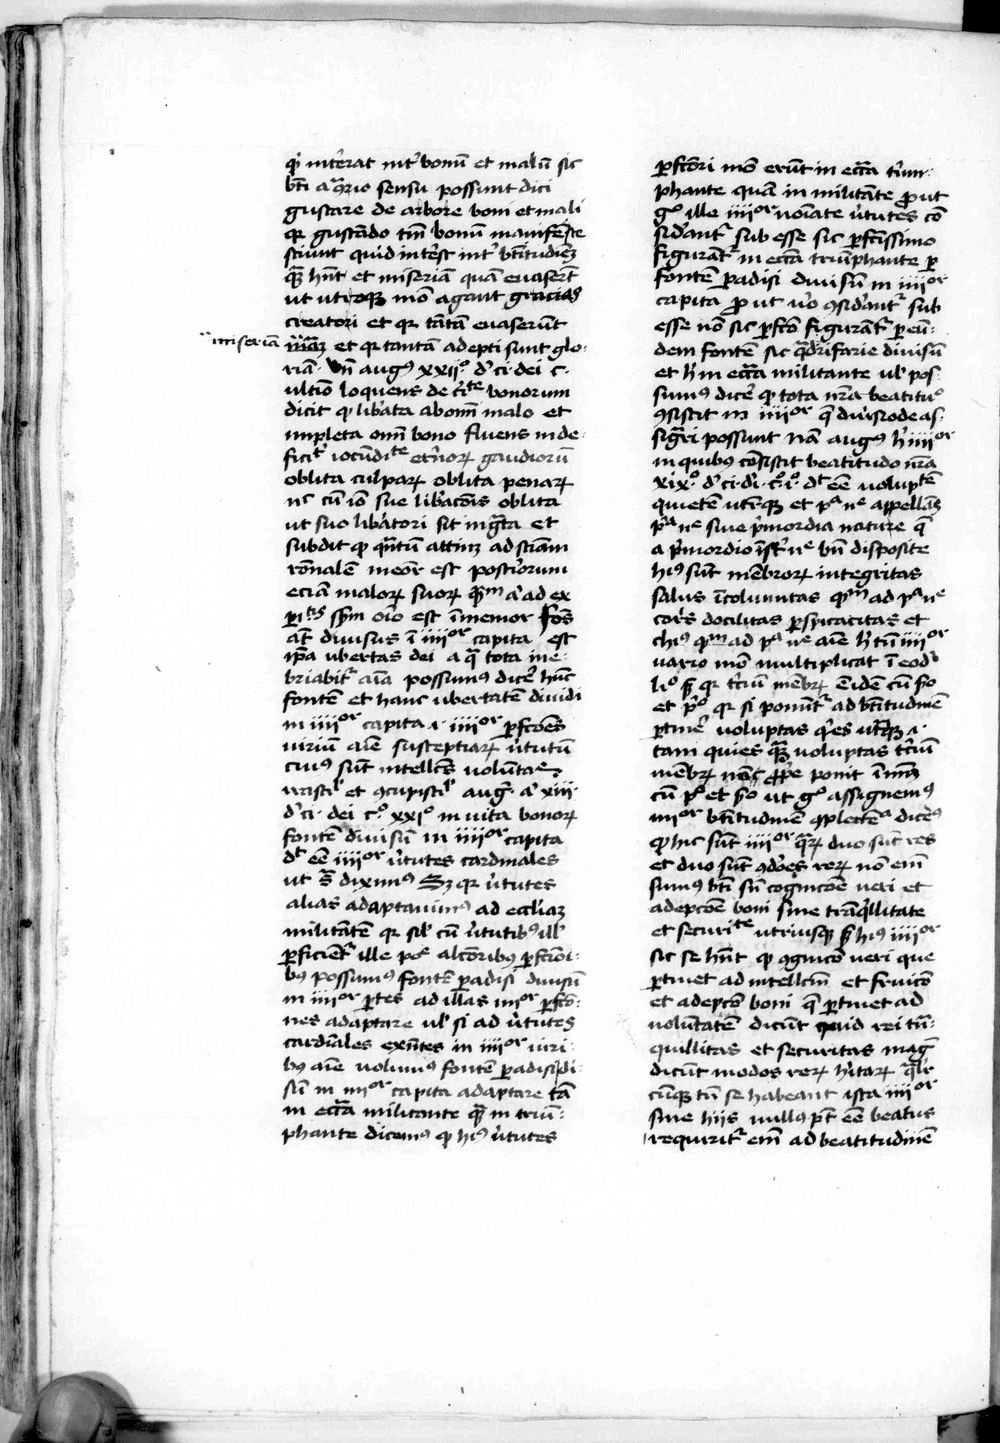 qd' int'erat int' bonū et malū sic
bt̄i a q̄rio sensu possunt dici
gustare de arbore boni et mali
qr gustādo tm̄ bonū manifeste
sciunt quid int'est int' bt̄itudinē
q̄ȝ hn̄t et miseriā quā euaser̄t
ut utroqȝ mō agant gracias
creatori et qr tātā euaserūt
miseriā
et qr tantā adepti sunt glo-
riā. Vn̄ augꝰ xxiiº. d' ci. dei c.
ultīo loquens de c'i'te bonorum
dicit qp lib'ata ab om̄i malo et
impleta om̄i bono fluens inde-
ficit' iocūdi'te et'nor̄ gaudiorū
oblita culpar̄ oblita penar̄
nc cū iō sue lib'acōis oblita
ut suo lib'atori sit inḡta et
subdit qp qn̄tū attinȝ ad sciām
rōnalē meor̄ est post'iorum
eciā malor̄ suor̄ q̄m a' ad ex
p'i'tis sp̄m oīo est īmemor Fōs
at̄ diuisus ī iiiior capita est
ip̄a ubertas dei a q̄ tota ine-
briabit' aīa possumꝰ dicē hūc
fontē et hanc ubertatē diuidi
in iiiior capita .i. iiiior p̄fcōes
uiriū aīe susceptiuar̄ u'tutū
cuiꝰ sūt intellcūs volūtas
irascil' et ɔcupiscil' augꝰ. a' xiii.
d' ci. dei cº. xxiº in uita bonor̄
fontē diuisū in iiiior capita
d't eē iiiior u'tutes cardinales
ut s̄ diximꝰ Sȝ qr u'tutes
alias adaptauimꝰ ad eccl'iaȝ
militātē qr sil' cū u'tutibꝰ ill'
p̄ficient' ille pot' alcōribȝ p̄fcōi-
bȝ possumꝰ fontē p̄adisi diuisū
in iiiior p̄tes ad illas iiiior p̄fcō-
nes adaptare ul' si ad u'tutes
cardīales exn̄tes in iiiior uiri-
bȝ aīe volumꝰ fontē p̄adisi di-
sū in iiiior capita adaptare tā
in ecc̄a militante q̄ȝ in triū-
phante dicemꝰ qp hiꝰ u'tutes
p̄fcōri mō erūt in ecc̄a t'ium-
phante quā in militāte prout
gº ille iiiior noīate u'tutes cō
sid'ant' sub esse sic p̄fctīssimo
figurant' in ecc̄a triūphante p̄
fontē p̄adisi diuisū in iiiior
capita prout u'o ɔsid'ant' sub
esse nō sic p̄fcō figurant' p̄ eū-
dem fontē sic q̄drifarie diuisū
et h' in ecc̄a militante ul' pos-
sumꝰ dicē qp tota nr̄a beatituº
ɔsistit in iiiior q̄ diuisio de as-
siḡri possunt Nā augꝰ h' iiiior
in quibȝ cōsistit beatitudo nr̄a
xixº. d' ci. d'i. cº. iº. d't eē uoluptē
quietē utrūqȝ et pa ne appellās
pa ne siue p'mordia nature q̄
a p'mordio īst' ne bn̄ disposite
hiꝰ sūt mēbror̄ integritas
salus īcolumitas qm ad pa ne
corp̄is docilitas p̄spicacitas et
chiꝰ qm ad pa ne aīe h' tn̄ iiiior
uario mō multiplicat ī eod'
liº s̄ qr t'ciū mēbr̄ Eidē cū sō
et p'º qr si ponūt' ad bt̄itudinē
p̄tinē' uoluptas q'es utrūqȝ .i.
tam quies q̄ȝ uoluptas t'ciū
mēbr̄ p̄pe ponit īmīs
cū pº et sō ut gº assignemꝰ
iiiior bt̄itudinē ɔplectēa dicēꝰ
qp hic sūt iiiior q̄r̄ duo sūt res
et duo sūt ɔd'oēs rer̄ nō em̄
sumꝰ bt̄i sn̄ cognicōe ueri et
adepcōe boni sine trāq'llitate
et securi'te utriusqȝ s̄ hiꝰ iiiior
sic se hn̄t qp ɔgnicō ueri que
p̄tinet ad intellcm̄ et fruicō
et adepcō boni q̄ p̄tinet ad
uolūtatē dicūt quid rei tn̄-
quillitas et securitas maḡ
dicūt modos rer̄ h'itar̄ q̄lr
cūqȝ tn̄ se habeant ista iiiior
sine hiis nullꝰ pt̄ eē beatus
requirit' em̄ ad beatitudinē